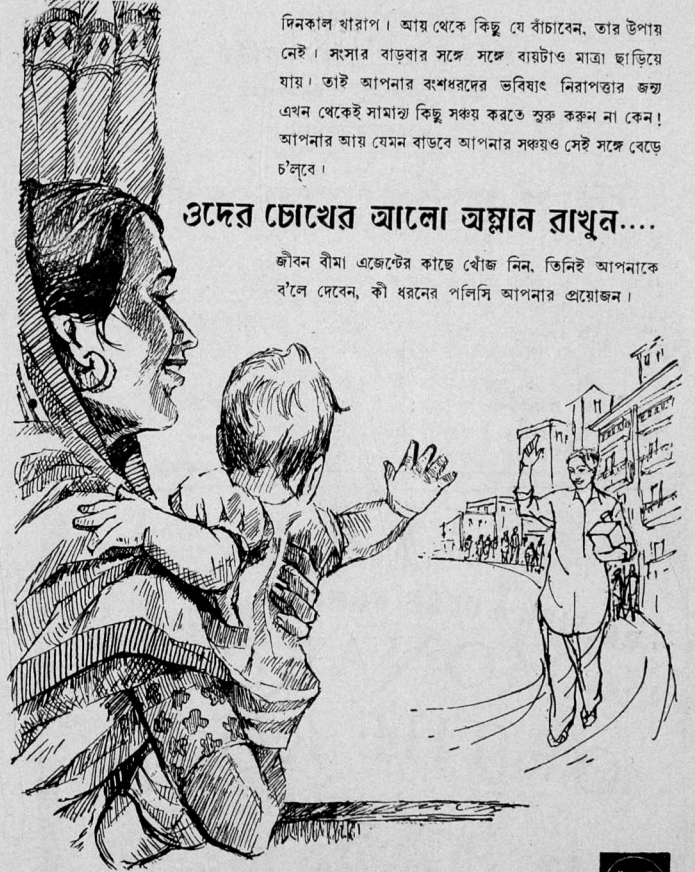 দিনকাল খারাপ। আয় থেকে কিছু যে বাঁচাবেন, তার উপায়
নেই। সংসার বাড়বার সঙ্গে সঙ্গে ব্যয়টাও মাত্রা ছাড়িয়ে
যায়। তাই আপনার বংশধরদের ভবিষ্যৎ নিরাপত্তার জন্য
এখন থেকেই সামান্য কিছু সঞ্চয় করতে সুরু করুন না কেন!
আপনার আয় যেমন বাড়বে আপনার সঞ্চয়ও সেই সঙ্গে বেড়ে
চ'ল্‌বে।
ওদের চোখের আলো অম্লান রাখুন....
জীবন বীমা এজেন্টের কাছে খোঁজ নিন, তিনিই আপনাকে
ব'লে দেবেন, কী ধরনের পলিসি আপনার প্রয়োজন।